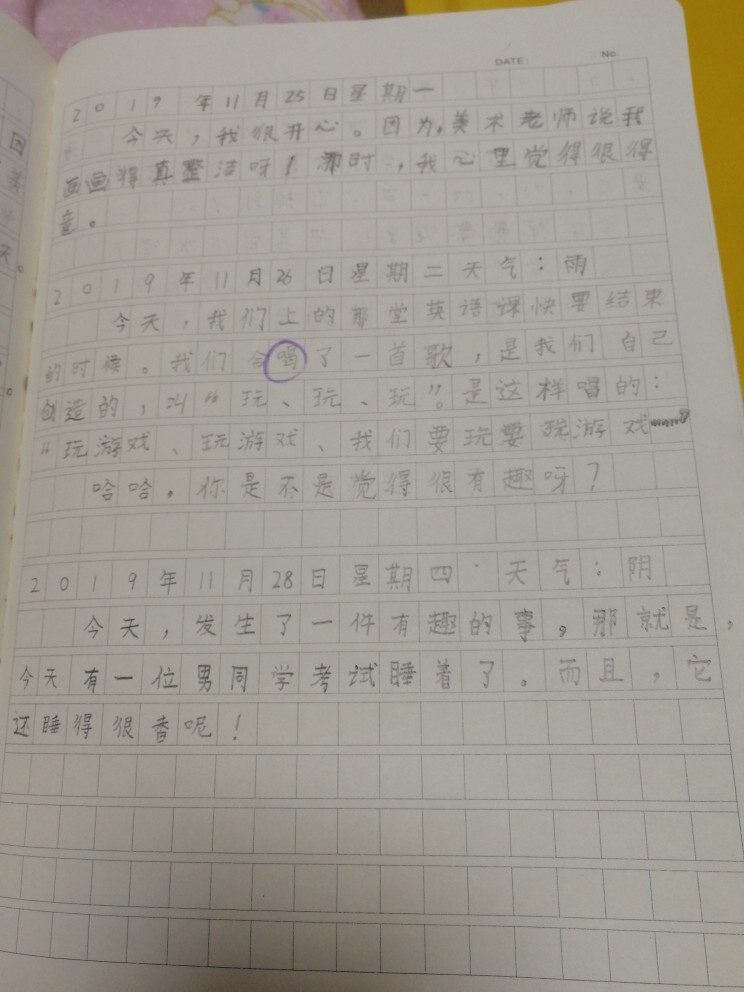 DATE: No:
2019 年11月25日星期一
今天，我很开心。因为，美术老师说我
画画得真整洁呀！那时，我心里觉得很得
意。
2019年11月26日星期二天气：雨
今天，我们上的那堂英语课快要结束
的时候。我们合唱了一首歌，是我们自己
创造的，叫“玩、玩、玩”。是这样唱的：
“玩游戏、玩游戏、我们要玩耍游戏
哈哈。你是不是觉得很有趣呀？
2019年11月28日星期四·天气：阴
今天，发生了一件有趣的事。那就是，
今天有一位男同学考试睡着了。而且，它
还睡得很香呢！